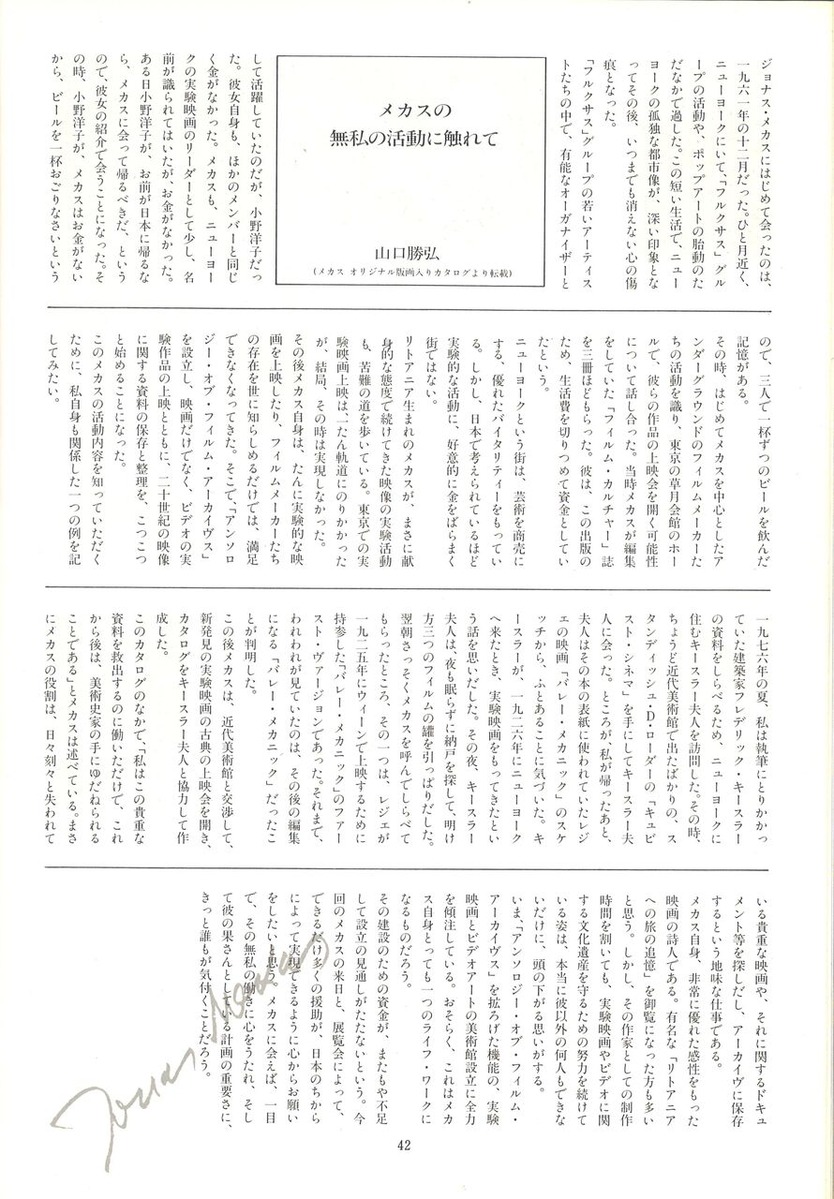 メカスの
無私の活動に触れて
山口勝弘
(メカス オリジナル版画入りカタログより転載)
ジョナス・メカスにはじめて会ったのは、
一九六一年の十二月だった。ひと月近く、
ニューヨークにいて、「フルクサス」グル
ープの活動や、ポップアートの胎動のた
だなかで過した。この短い生活で、ニュー
ヨークの孤独な都市像が、深い印象とな
ってその後、いつまでも消えない心の傷
痕となった。
「フルクサス」グループの若いアーティス
トたちの中で、有能なオーガナイザーと
して活躍していたのだが、小野洋子だっ
た。彼女自身も、ほかのメンバーと同じ
く金がなかった。メカスも、ニューヨー
クの実験映画のリーダーとして少し、名
前が識られてはいたが、お金がなかった。
ある日小野洋子が、お前が日本に帰るな
ら、メカスに会って帰るべきだ、という
ので、彼女の紹介で会うことになった。そ
の時、小野洋子が、メカスはお金がない
から、ビールを一杯おごりなさいという
ので、三人で一杯ずつのビールを飲んだ
記憶がある。
その時、はじめてメカスを中心としたア
ンダーグラウンドのフィルムメーカーた
ちの活動を識り、東京の草月会館のホー
ルで、彼らの作品の上映会を開く可能性
について話し合った。当時メカスが編集
をしていた「フィルム・カルチャー」誌
を三冊ほどもらった。彼は、この出版の
ため、生活費を切りつめて資金としてい
たという。
ニューヨークという街は、芸術を商売に
する、優れたバイタリティーをもってい
る。しかし、日本で考えられているほど
実験的な活動に、好意的に金をばらまく
街ではない。
リトアニア生まれのメカスが、まさに献
身的な態度で続けてきた映像の実験活動
も、苦難の道を歩いている。東京での実
験映画上映は、一たん軌道にのりかかった
が、結局、その時は実現しなかった。
その後メカス自身は、たんに実験的な映
画を上映したり、フィルムメーカーたち
の存在を世に知らしめるだけでは、満足
できなくなってきた。そこで、「アンソロ
ジー・オブ・フィルム・アーカイヴス」
を設立し、映画だけでなく、ビデオの実
験作品の上映とともに、二十世紀の映像
に関する資料の保存と整理を、こつこつ
と始めることになった。
このメカスの活動内容を知っていただく
ために、私自身も関係した一つの例を記
してみたい。
一九七六年の夏、私は執筆にとりかかっ
ていた建築家フレデリック・キースラー
の資料をしらべるため、ニューヨークに
住むキースラー夫人を訪問した。その時、
ちょうど近代美術館で出たばかりの、ス
タンディッシュ・D・ローダーの「キュビ
スト・シネマ」を手にしてキースラー夫
人に会った。ところが、私が帰ったあと、
夫人はその本の表紙に使われていたレジ
ェの映画「バレー・メカニック」のスケ
ッチから、ふとあることに気づいた。キ
ースラーが、一九二六年にニューヨーク
へ来たとき、実験映画をもってきたとい
う話を思いだした。その夜、キースラー
夫人は、夜も眠らずに納戸を探して、明け
方三つのフィルムの罐を引っぱりだした。
翌朝さっそくメカスを呼んでしらべて
もらったところ、その一つは、レジェが
一九二五年にウィーンで上映するために
持参した「バレー・メカニック」のファー
スト・ヴァージョンであった。それまで、
われわれが見ていたのは、その後の編集
になる「バレー・メカニック」だったこ
とが判明した。
この後メカスは、近代美術館と交渉して、
新発見の実験映画の古典の上映会を開き、
カタログをキースラー夫人と協力して作
成した。
このカタログのなかで、「私はこの貴重な
資料を救出するのに働いただけで、これ
から後は、美術史家の手にゆだねられる
ことである」とメカスは述べている。まさ
にメカスの役割は、日々刻々と失われて
いる貴重な映画や、それに関するドキュ
メント等を探しだし、アーカイヴに保存
するという地味な仕事である。
メカス自身、非常に優れた感性をもった
映画の詩人である。有名な「リトアニア
への旅の追憶」を御覧になった方も多い
と思う。しかし、その作家としての制作
時間を割いても、実験映画やビデオに関
する文化遺産を守るための努力を続けて
いる姿は、本当に彼以外の何人もできな
いだけに、頭の下がる思いがする。
いま、「アンソロジー・オブ・フィルム・
アーカイヴス」を拡ろげた機能の、実験
映画とビデオアートの美術館設立に全力
を傾注している。おそらく、これはメカ
ス自身とっても一つのライフ・ワークに
なるものだろう。
その建設のための資金が、またもや不足
して設立の見通しがたたないという。今
回のメカスの来日と、展覧会によって、
できるだけ多くの援助が、日本のちから
によって実現できるように心からお願い
をしたいと思う。メカスに会えば、一目
で、その無私の働きに心をうたれ、そし
て彼の果さんとしている計画の重要さに、
きっと誰もが気付くことだろう。
Jonas Mekas
42